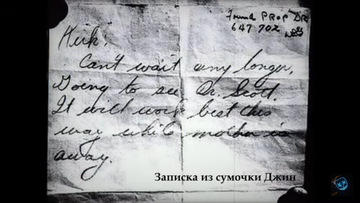 Found PROP DR
647 702
Kirk.
Can't wait any longer,
Going to see Dr. Scott.
It will work best this
way while mother is
away.
Записка из сумочки Джин